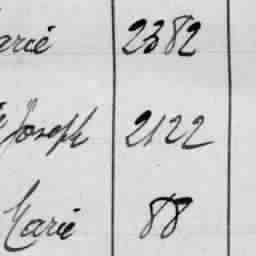 arie 2382
Joseph 2122
Marie 88